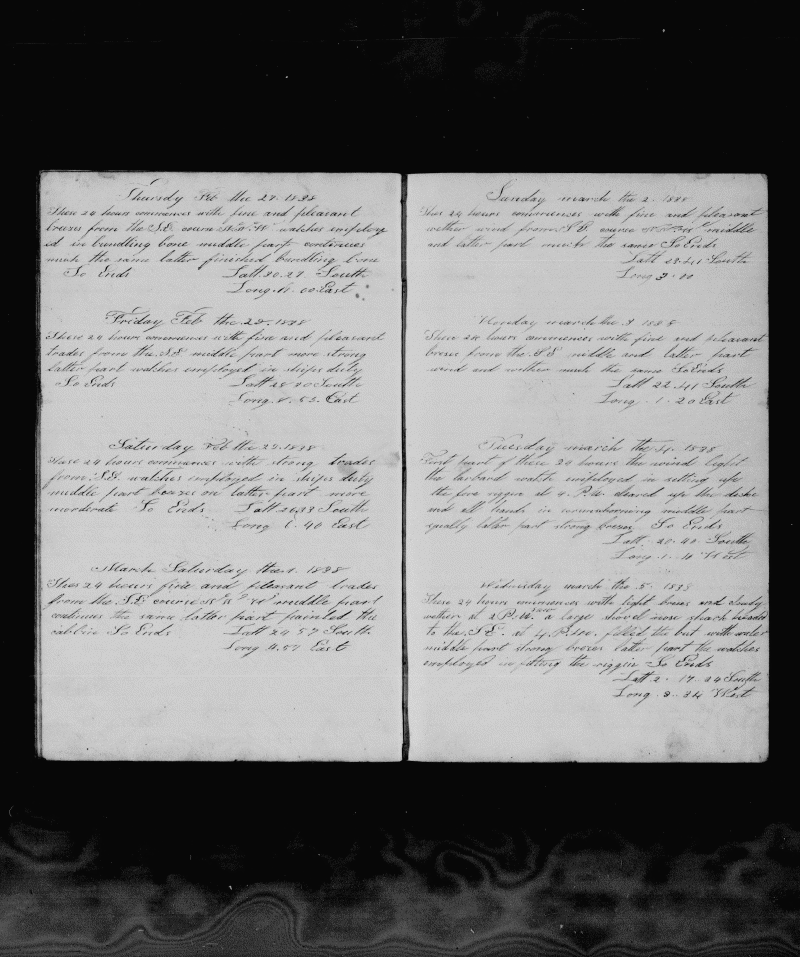 Thursdy Feb the 27. 1838
These 24 hours commences with fine and pleasant
brezes from the S.E. course N.W. watches employ
id in bundling bone middle part continues
much the same latter finished bundling bone
So Ends Latt. 30. 27 South
Long. 11. 00 East
Friday Feb the 28. 1838
These 24 hours commences with fine and pleasant
trades from the S.E. middle part more strong
latter part watches employed in ships duty
So Ends Latt 28 20 South
Long. 8. 53. East
Saturday Feb the 29. 1838
These 24 hours commences with strong trades
from S.E. watches employed in ships duty
middle part brezes on latter part more
morderate So Ends Latt 26 33 South
Long 6. 40 East
March Saturday the 1. 1838
These 24 hours fine and pleasant trades
from the S.E course middle part
continues the same latter part painted the
cabbin So Ends Latt 24 57 South
Long 4. 57 East
Sunday march the 2. 1838
Thes 24 hours commences with fine and pleasant
wether wind from S.E. course middle
and latter part much the same So Ends
Latt 23. 41 South
Long 3. 00
Monday march the 3 1838
These 24 hours commences with fine and pleasant
breze from the S.E middle and latter part
wind and wether much the same So Ends
Latt 22. 41 South
Long. 1. 20 East
Tuesday march the 4. 1838
First part of these 24 hours the wind light
the larbard watch employed in setting up
the fore riggin at 4. P.M. cleared up the decks
and all hands in middle part
squally latter part strong brezes So Ends
Latt. 20. 40. South
Long. 1. 10 West
Wednesday march the 5. 1838
These 24 hours commences with light brezes and cloudy
wether at 2 P.M. saw a large shoal
to the S.E. at 4. P.M. filled the but with water
middle part strong brezes latter part the watches
employed in fitting the riggin So Ends
Latt. 17. 24 South
Long. 3. 34 West